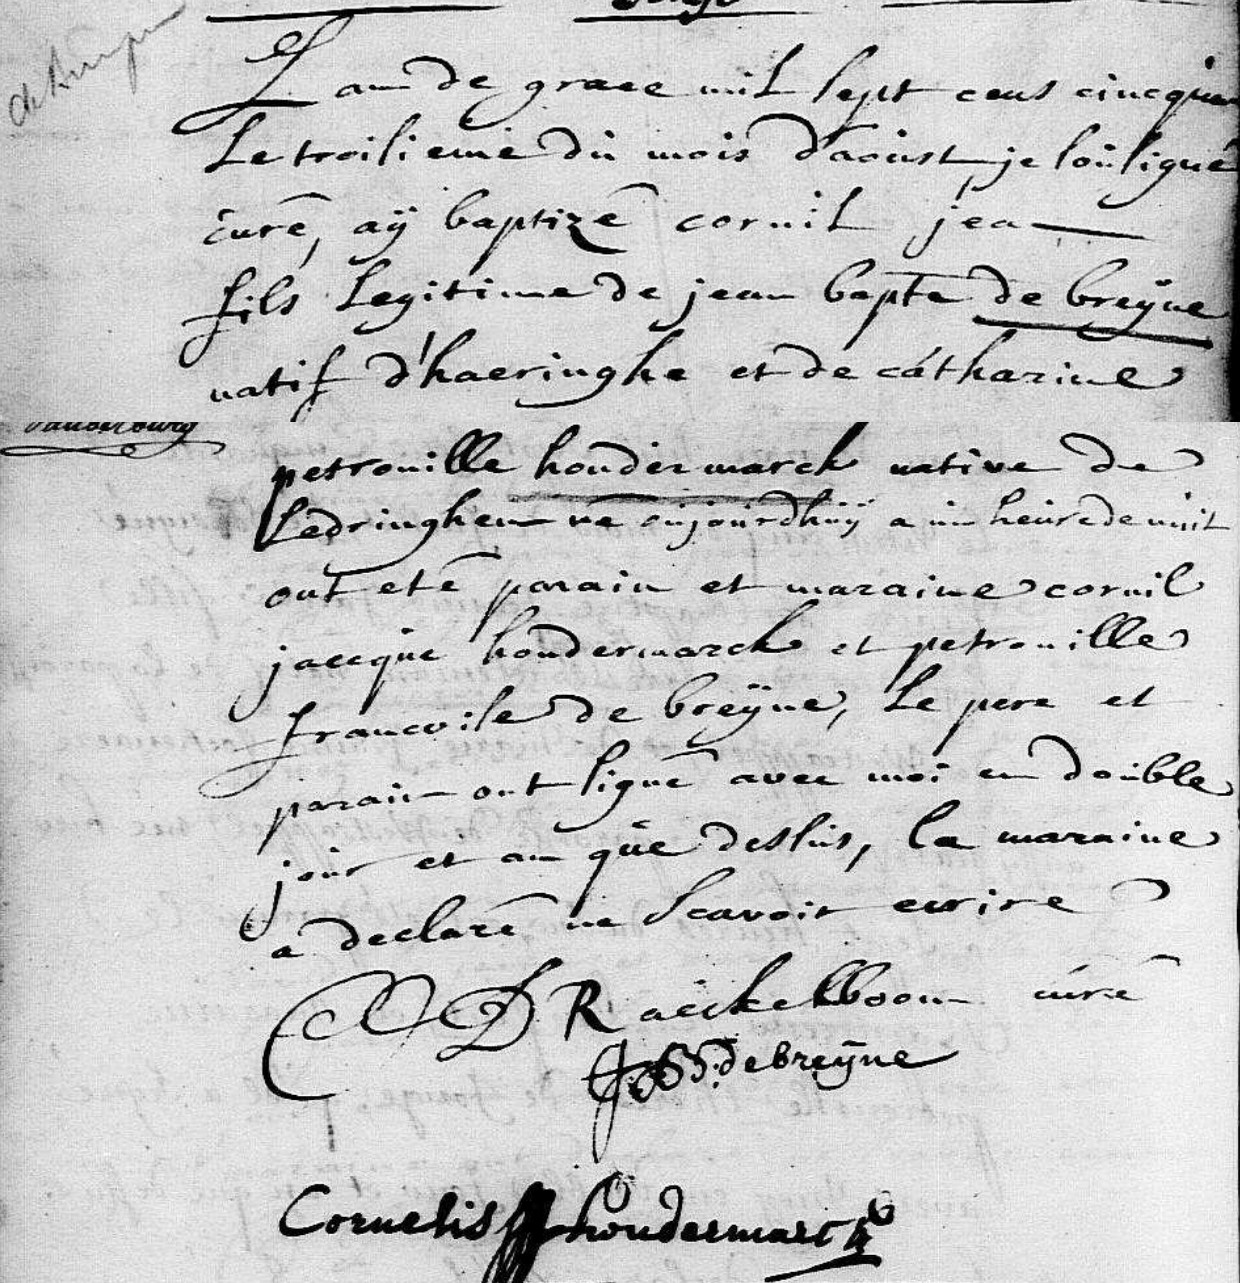 de Breyne
L'an de grace mil sept cens cincquan
Le troisieme du mois d'aoust je soùsigné
curé, aÿ baptizé cornil jea
fils Legitime de jean bapte de breÿne
natif d'haeringhe et de catharine
petronille houdermarck native de
Ledringhem né aujourdhuÿ a un heùre de nuit
ont eté parain et maraine cornil
jacque houdermarck et petronille
francoise de breÿne, Le pere et
parain ont signé avec moi en doùble
joùr et an qùe dessus, la maraine
a declaré ne scavoir ecrire
C D Raeckelboom cùré
J B debreÿne
Cornelis houdermarck